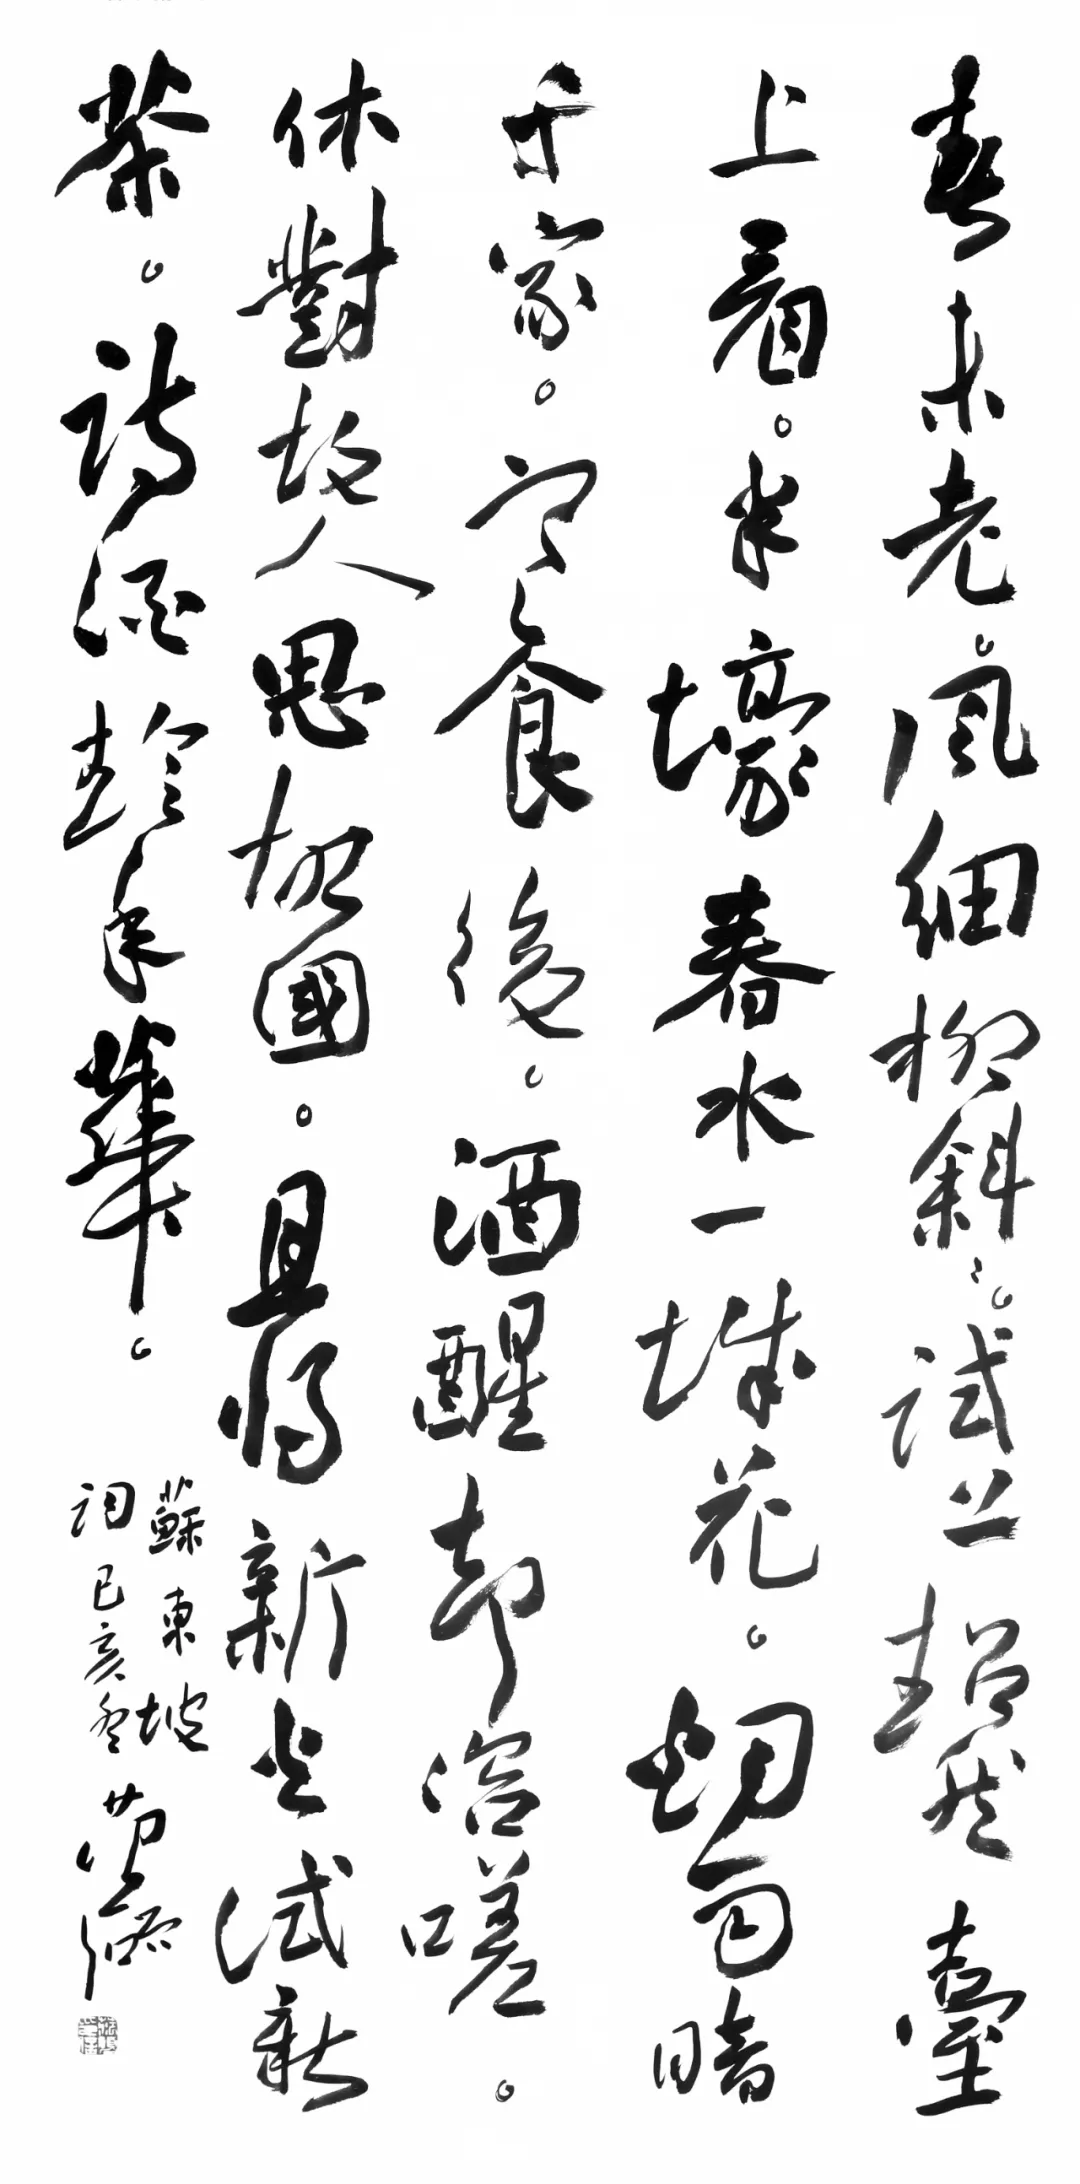 春未老。風細柳斜〻。試上超然臺
上看。半壕春水一城花。烟雨暗
千家。寒食後。酒醒却咨嗟。
休對故人思故國。且將新火試新
茶。詩酒趁年華。
蘇東坡
詞己亥冬